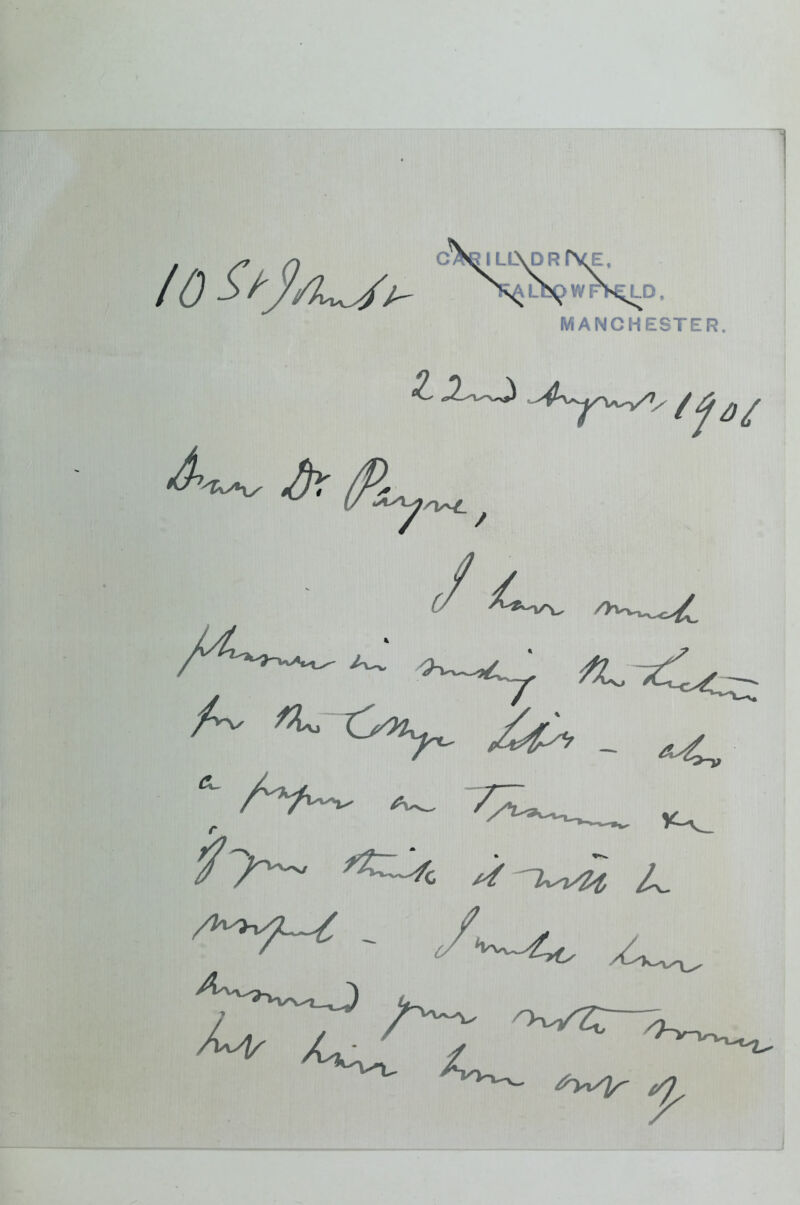 CARILL DRIVE,
FALLOWFIELD,
MANCHESTER.
10 St John St
22nd August 1906
Dear Dr. Payne,
I have much
pleasure in sending the Lecture
for the College Liby – also
a paper on Trauma &c
if you think it will be
useful – I would have
answered your note sooner
but have been out of